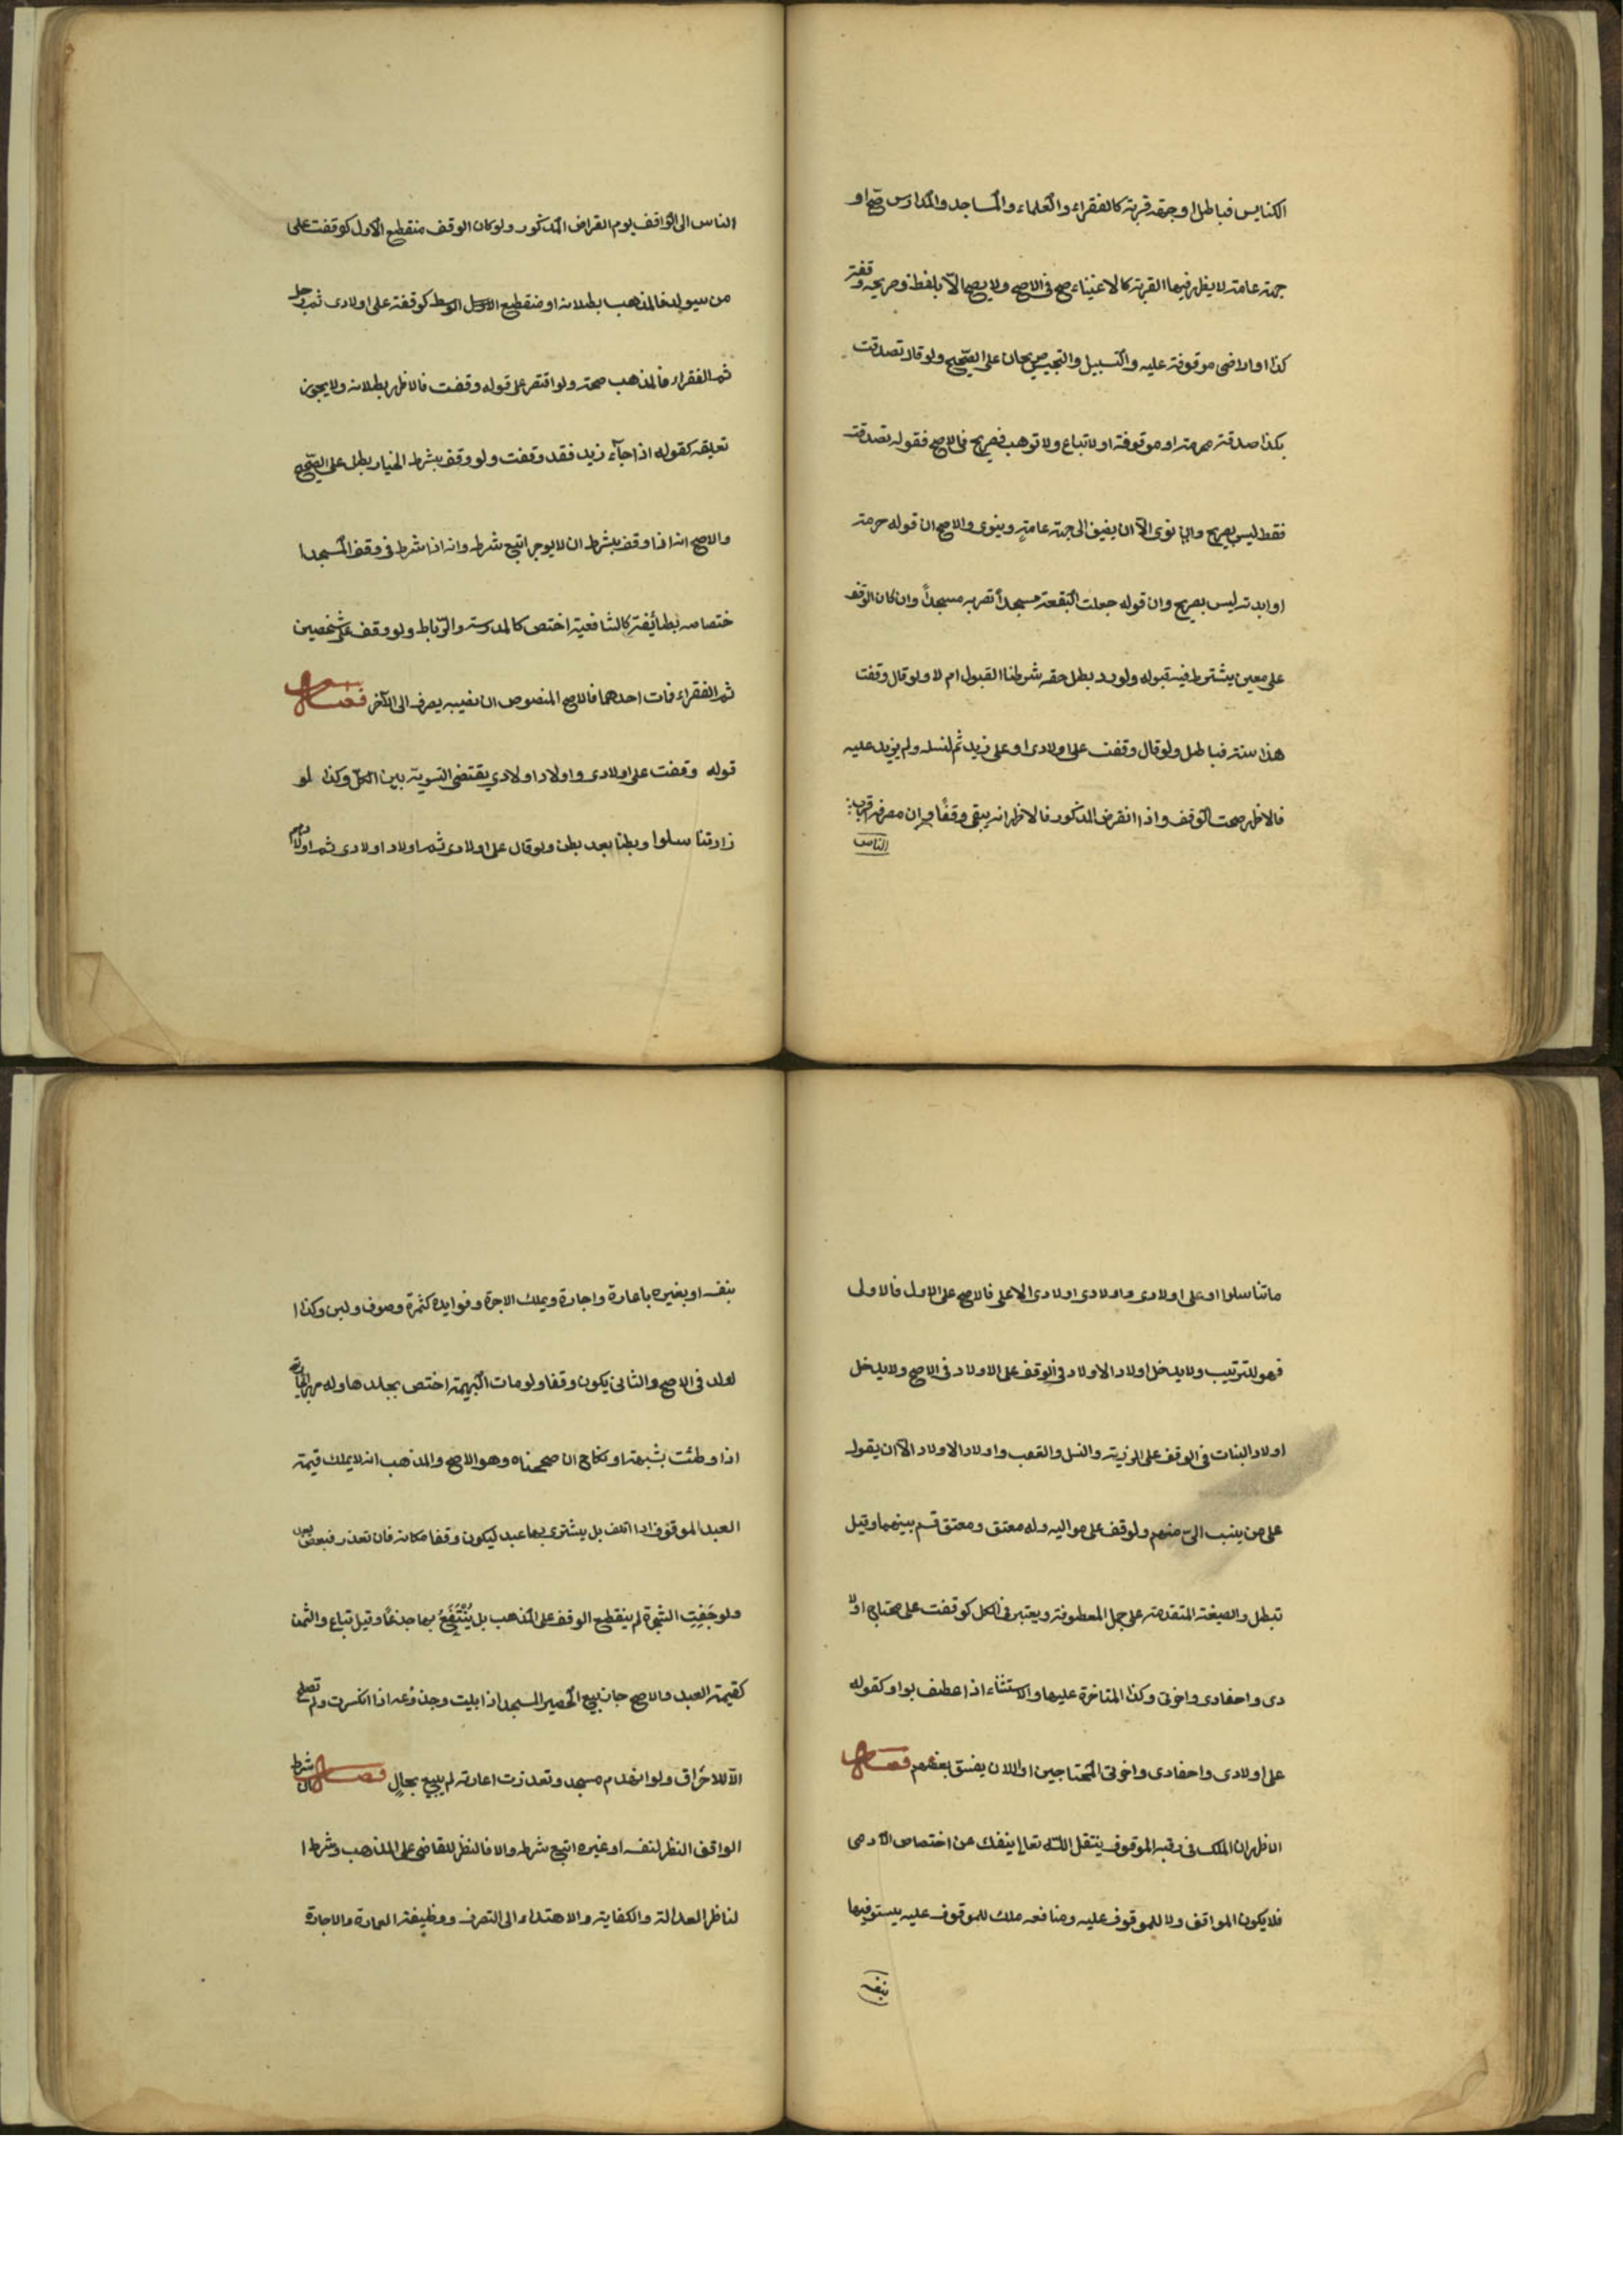 الكنايس فباطل او جهة قربة كالفقراء والعلماء والمساجد والمدارس صح او
جهة عامة لا يظهر فيها القربة كالاغنياء صح في الاصح ولا يصح الا بلفظ وصريحه وقفت
كذا او ارضى موقوفة عليه والتسبيل والتحبيس صريحان على الصحيح ولو قال تصدقت
بكذا صدقة محرمة او موقوفة او لا تباع ولا توهب فصريح في الاصح فقوله تصدقت
فقط ليس بصريح وان نوى الا ان يضيف الى جهة عامة وينوى والاصح ان قوله حرمته
او ابدته ليس بصريح وان قوله جعلت البقعة مسجداً تصير به مسجداً وان كان الوقف
على معين يشترط فيه قبوله ولو رد بطل حقه شرطنا القبول ام لا ولو قال وقفت
هذا سنة فباطل ولو قال وقفت على اولادى او على زيد ثم لنسله ولم يزيد عليه
فالاظهر صحت الوقف واذا انقرض المذكور فالاظهر انه يبقى وقفاً وان مصرفه اقرب
الناس
الناس الى الواقف يوم انقراض المذكور ولو كان الوقف منقطع الاول كوقفت على
من سيولد فالمذهب بطلانه او منقطع الوسط كوقفته على اولادى ثم رجل
ثم الفقراء فالمذهب صحته ولو اقتصر على قوله وقفت فالاظهر بطلانه ولا يجوز
تعليقه كقوله اذا جاء زيد فقد وقفت ولو وقف بشرط الخيار بطل على الصحيح
والاصح انه اذا وقف بشرط ان لا يوجر اتبع شرطه وانه اذا شرط في وقف المسجد ا
ختصاصه بطائفة كالشافعية اختص كالمدرسة والرباط ولو وقف على شخصين
ثم الفقراء فمات احدهما فالاصح المنصوص ان نصيبه يصرف الى الآخر فصل
قوله وقفت على اولادى واولاد اولادي يقتضى التسوية بين الكل وكذا لو
زاد تناسلوا وبطنا بعد بطن ولو قال على اولادى ثم اولاد اولادى ثم اولادهم
ماتناسلوا او على اولادى واولادى اولادى الاعلى فالاصح على الاول فالاولى
فهو للترتيب ولا يدخل اولاد الاولاد في الوقف على الاولاد في الاصح ولا يدخل
اولاد البنات في الوقف على الذرية والنسل والعقب واولاد الاولاد الا ان يقول
على من ينسب الىّ منهم ولو وقف على مواليه وله معتق ومعتق قسم بينهما وقيل
تبطل والصيغة المتقدمة على جمل المعطوفة ويعتبر في الكل كوقفت على محتاجى اولا
دى واحفادى واخوتى وكذا المتاخرة عليها والاستثناء اذا عطف بواو كقوله
على اولادى واحفادى واخوتى المحتاجين او الا ان يفسق بعضهم فصل
الاظهر ان الملك فى رقبة الموقوف ينتقل الى الله تعالى ينفك عن اختصاص الآدمى
فلا يكون الواقف ولا للموقوف عليه ومنافعه ملك للموقوف عليه يستوفيها
بنفسه
بنفسه او بغيره باعارة واجارة ويملك الاجرة وفوايده كثمرة وصوف ولبن وكذا ا
لولد في الاصح والثانى يكون وقفا ولو مات البهيمة اختص بجلدها وله مهر الجارية
اذا وطئت بشبهة او نكاح ان صححناه وهو الاصح والمذهب انه لا يملك قيمة
العبد الموقوف اذا اتلف بل يشترى بها عبد ليكون وقفا مكانه فان تعذر فبعض
ولو جَفِتِ الشجرة لم ينقطع الوقف على المذهب بل يُنْتَفَعُ بها جذعًا وقيل تباع والثمن
كقيمة العبد والاصح جاز بيع الحصير المسجد اذا بليت وجذوعه اذا انكسرت ولم تصلح
الا للاحراق ولو انهدم مسجد وتعذرت اعادته لم يبيع بحالٍ فصل ان شرط
الواقف النظر لنفسه او غيره اتبع شرطه والا فالنظر للقاضى على المذهب وشرط ا
لناظر العدالة والكفاية والاهتداء الى التصرف ووظيفته العمارة والاجارة